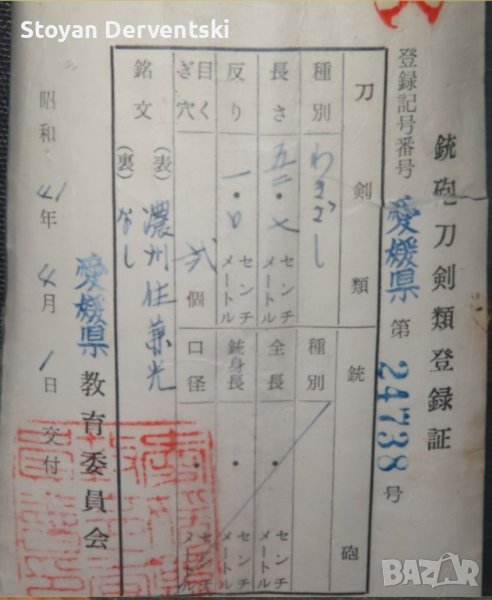 Stoyan Derventski
銃砲刀剣類登録証
登録記号番号 愛媛県 第 24738 号
刀剣類
種別 わきざし
長さ 五二・七 センチメートル
反り 一・〇 センチメートル
目くぎ穴 弐 個
銘文 (表) 濃州住兼光
(裏) なし
銃砲
種別
全長 ・ センチメートル
銃身長 ・ センチメートル
口径 ・ センチメートル
昭和 41 年 4 月 1 日 交付
愛媛県教育委員会
BAZAR